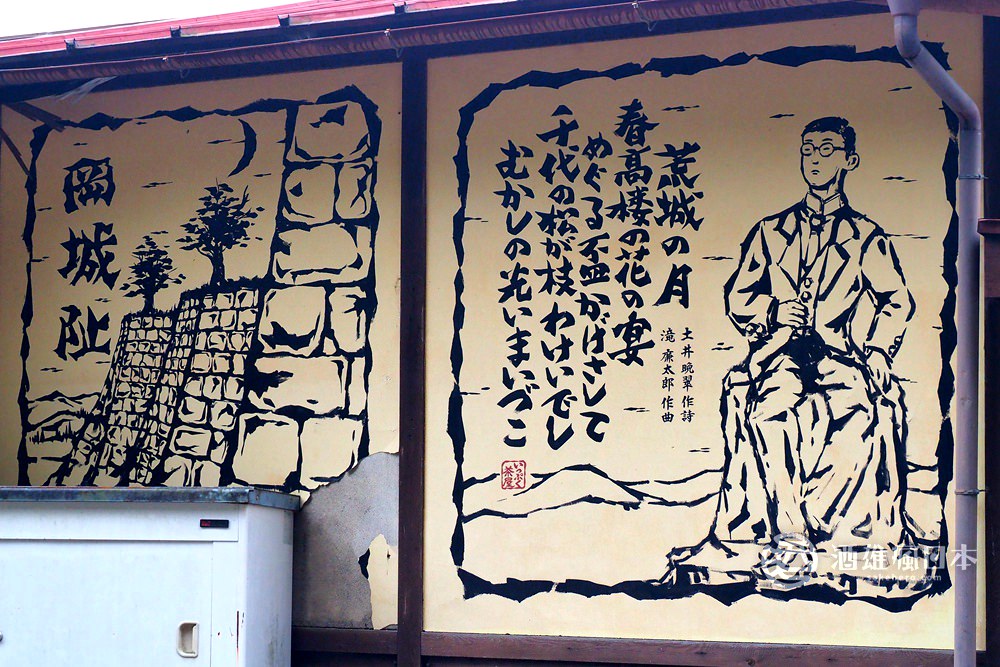 岡城阯
荒城の月
土井晩翠 作詩
滝廉太郎 作曲
春高楼の花の宴
めぐる盃かげさして
千代の松が枝わけいでし
むかしの光いまいづこ
いっぷく
茶屋
酒雄瘋日本
sakehero.com